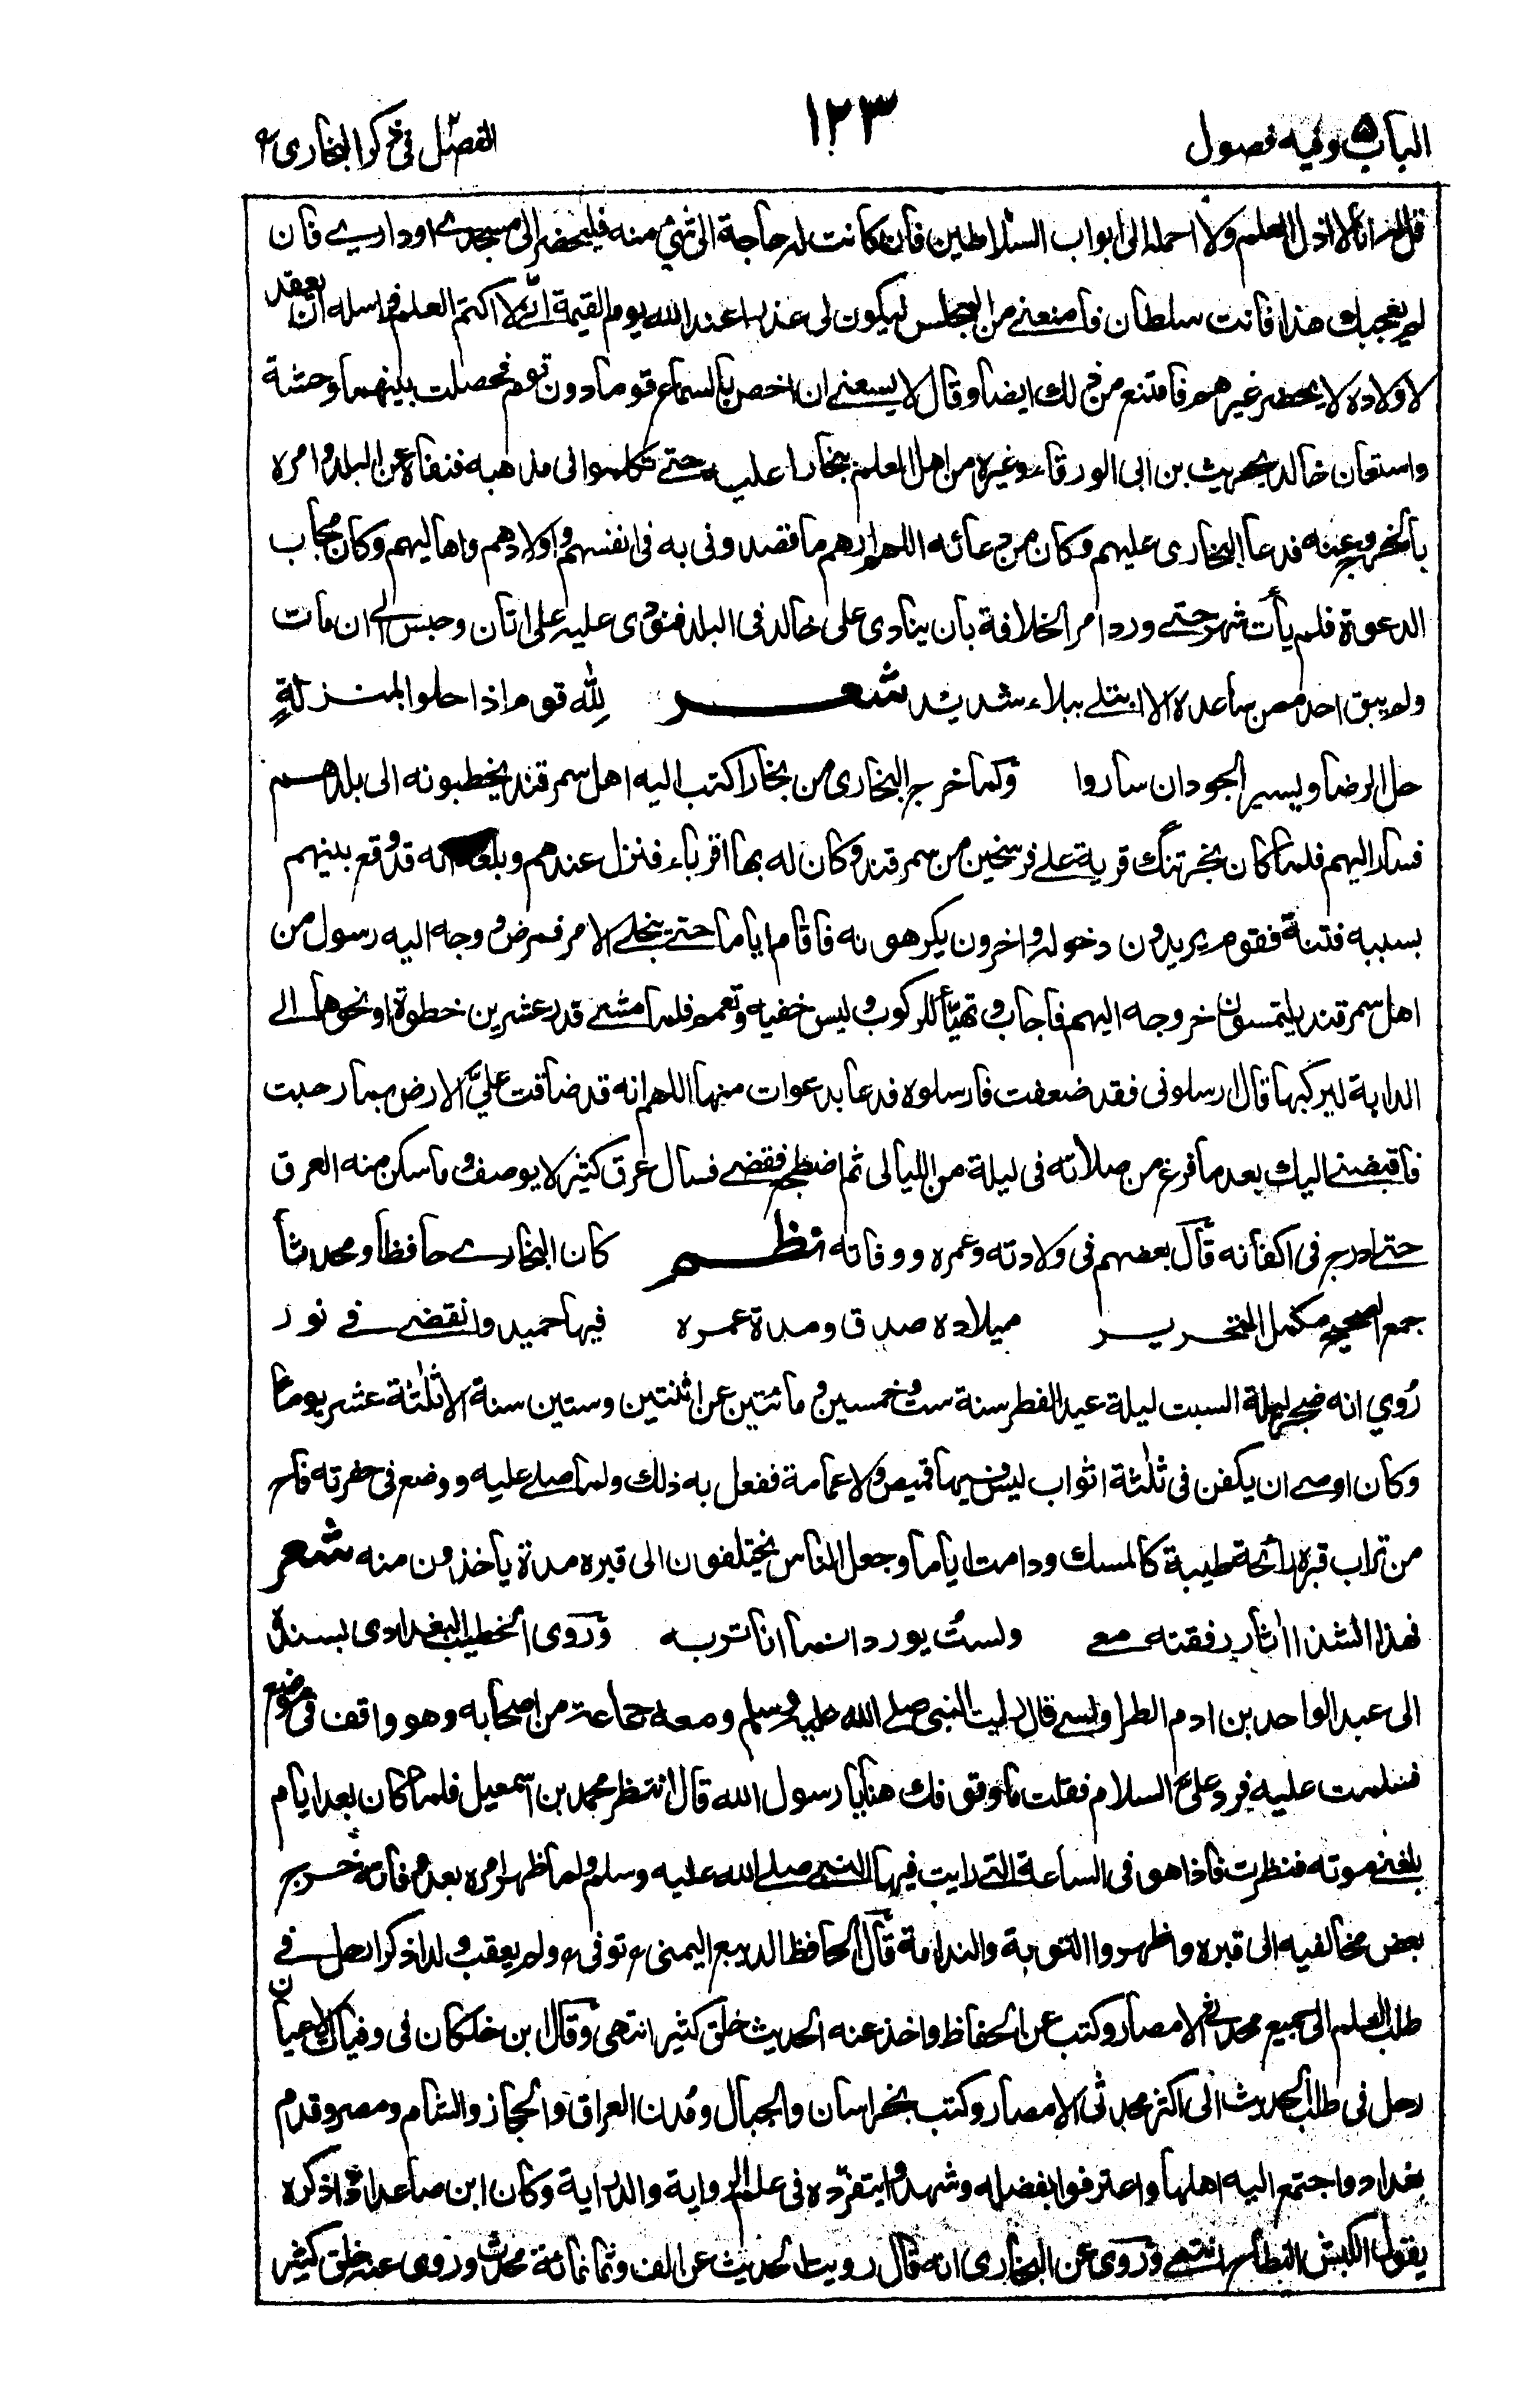 الباب ۵ وفيه فصول
۱۲۳
الفصل ۲ في ذكر البخاري
قل له انا لا اذل العلم ولا احمله الى ابواب السلاطين فان كانت له حاجة الى شيء منه فليحضر الى مسجدي او داري فان
لم يعجبك هذا فانت سلطان فامنعني من المجلس ليكون لى عذر عند الله يوم القيمة انى لا اكتم العلم فراسله ان يعقد
لاولاده لا يحضر غيرهم فامتنع من ذلك ايضا وقال لا يسعني ان اخص بالسماع قوما دون قوم فحصلت بينهما وحشة
واستعان خالد بحريث بن ابى الورقاء وغيره من اهل العلم ببخارا عليه حتى تكلموا فى مذهبه فنفاه عن البلد وامره
بالخروج عنه فدعا البخارى عليهم وكان من دعائه اللهم ارهم ما قصدونى به فى انفسهم واولادهم واهاليهم وكان مجاب
الدعوة فلم يأت شهر حتى ورد امر الخلافة بان ينادى على خالد فى البلد فنودى عليه على اتان وحبس الى ان مات
ولم يبق احد ممن ساعده الا ابتلى ببلاء شديد شعر لله قوم اذا حلوا بمنزلة
حل الرضا ويسير الجود ان ساروا ولما خرج البخارى من بخارا كتب اليه اهل سمرقند يخطبونه الى بلدهم
فسار اليهم فلما كان بخرتنگ قرية على فرسخين من سمرقند وكان له بها اقرباء فنزل عندهم وبلغه انه قد وقع بينهم
بسببه فتنة فقوم يريدون دخوله واخرون يكرهونه فاقام اياما حتى ينجلى الامر فمرض ووجه اليه رسول من
اهل سمرقند يلتمسون خروجه اليهم فاجاب وتهيأ للركوب ولبس خفيه وتعمم فلما مشى قدر عشرين خطوة او نحوها الى
الدابة ليركبها قال ارسلونى فقد ضعفت فارسلوه فدعا بدعوات منها اللهم انه قد ضاقت علي الارض بما رحبت
فاقبضني اليك بعد ما فرغ من صلاته فى ليلة من الليالى ثم اضطجع فقضى فسال عرق كثير لا يوصف وما سكن منه العرق
حتى ادرج فى اكفانه قال بعضهم فى ولادته وعمره ووفاته نظم كان البخاري حافظا ومحدثا
جمع الصحيح مكمل التحرير ميلاده صدق ومدة عمره فيها حميد وانقضى في نور
رُوي انه ضجع ليلة السبت ليلة عيد الفطر سنة ست وخمسين ومائتين عن اثنتين وستين سنة الا ثلثة عشر يوما
وكان اوصى ان يكفن فى ثلثة اثواب ليس فيها قميص ولا عمامة ففعل به ذلك ولما صلى عليه ووضع فى حفرته فاح
من تراب قبره رائحة طيبة كالمسك ودامت اياما وجعل الناس يختلفون الى قبره مدة ياخذون منه شعر
فهذا الشذا اثار رفقته معى ولستُ بورد انما انا تربه وروى الخطيب البغدادى بسنده
الى عبد الواحد بن ادم الطراويسى قال رايت النبى صلى الله عليه وسلم ومعه جماعة من اصحابه وهو واقف فى موضع
فسلمت عليه فرد علي السلام فقلت ما وقوفك هنا يا رسول الله قال انتظر محمد بن اسمعيل فلما كان بعد ايام
بلغني موته فنظرت فاذا هو فى الساعة التى رايت فيها النبى صلى الله عليه وسلم ولما ظهر امره بعد وفاته خرج
بعض مخالفيه الى قبره واظهروا التوبة والندامة قال الحافظ الديبع اليمنى توفى ولم يعقب ولدا ذكرا رحل في
طلب العلم الى جميع محدثى الامصار وكتب عن الحفاظ واخذ عنه الحديث خلق كثير انتهى وقال ابن خلكان فى وفيات الاعيان
رحل فى طلب الحديث الى اكثر محدثى الامصار وكتب بخراسان والجبال ومُدن العراق والحجاز والشام ومصر وقدم
بغداد واجتمع اليه اهلها واعترفوا بفضله وشهدوا بتفرده فى علم الرواية والدراية وكان ابن صاعد اذا ذكره
يقول الكبش النطاح انتهى وروى عن البخارى انه قال رويت الحديث عن الف وثمانمائة محدث وروى عنه خلق كثير